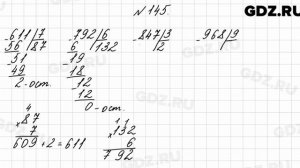 GDZ.RU
№ 145.
611|7 792|6 847|3 968|9
56 |87 6 |132 |2
51 19
49 18
2-ост. 12
12
0-ост.
4
×87 ×132
7 6
609+2=611 792